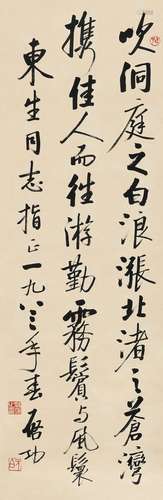 吹洞庭之白浪漲北渚之蒼灣
攜佳人而往游勤霧鬢与風鬟
東生同志指正一九八三年春啟功